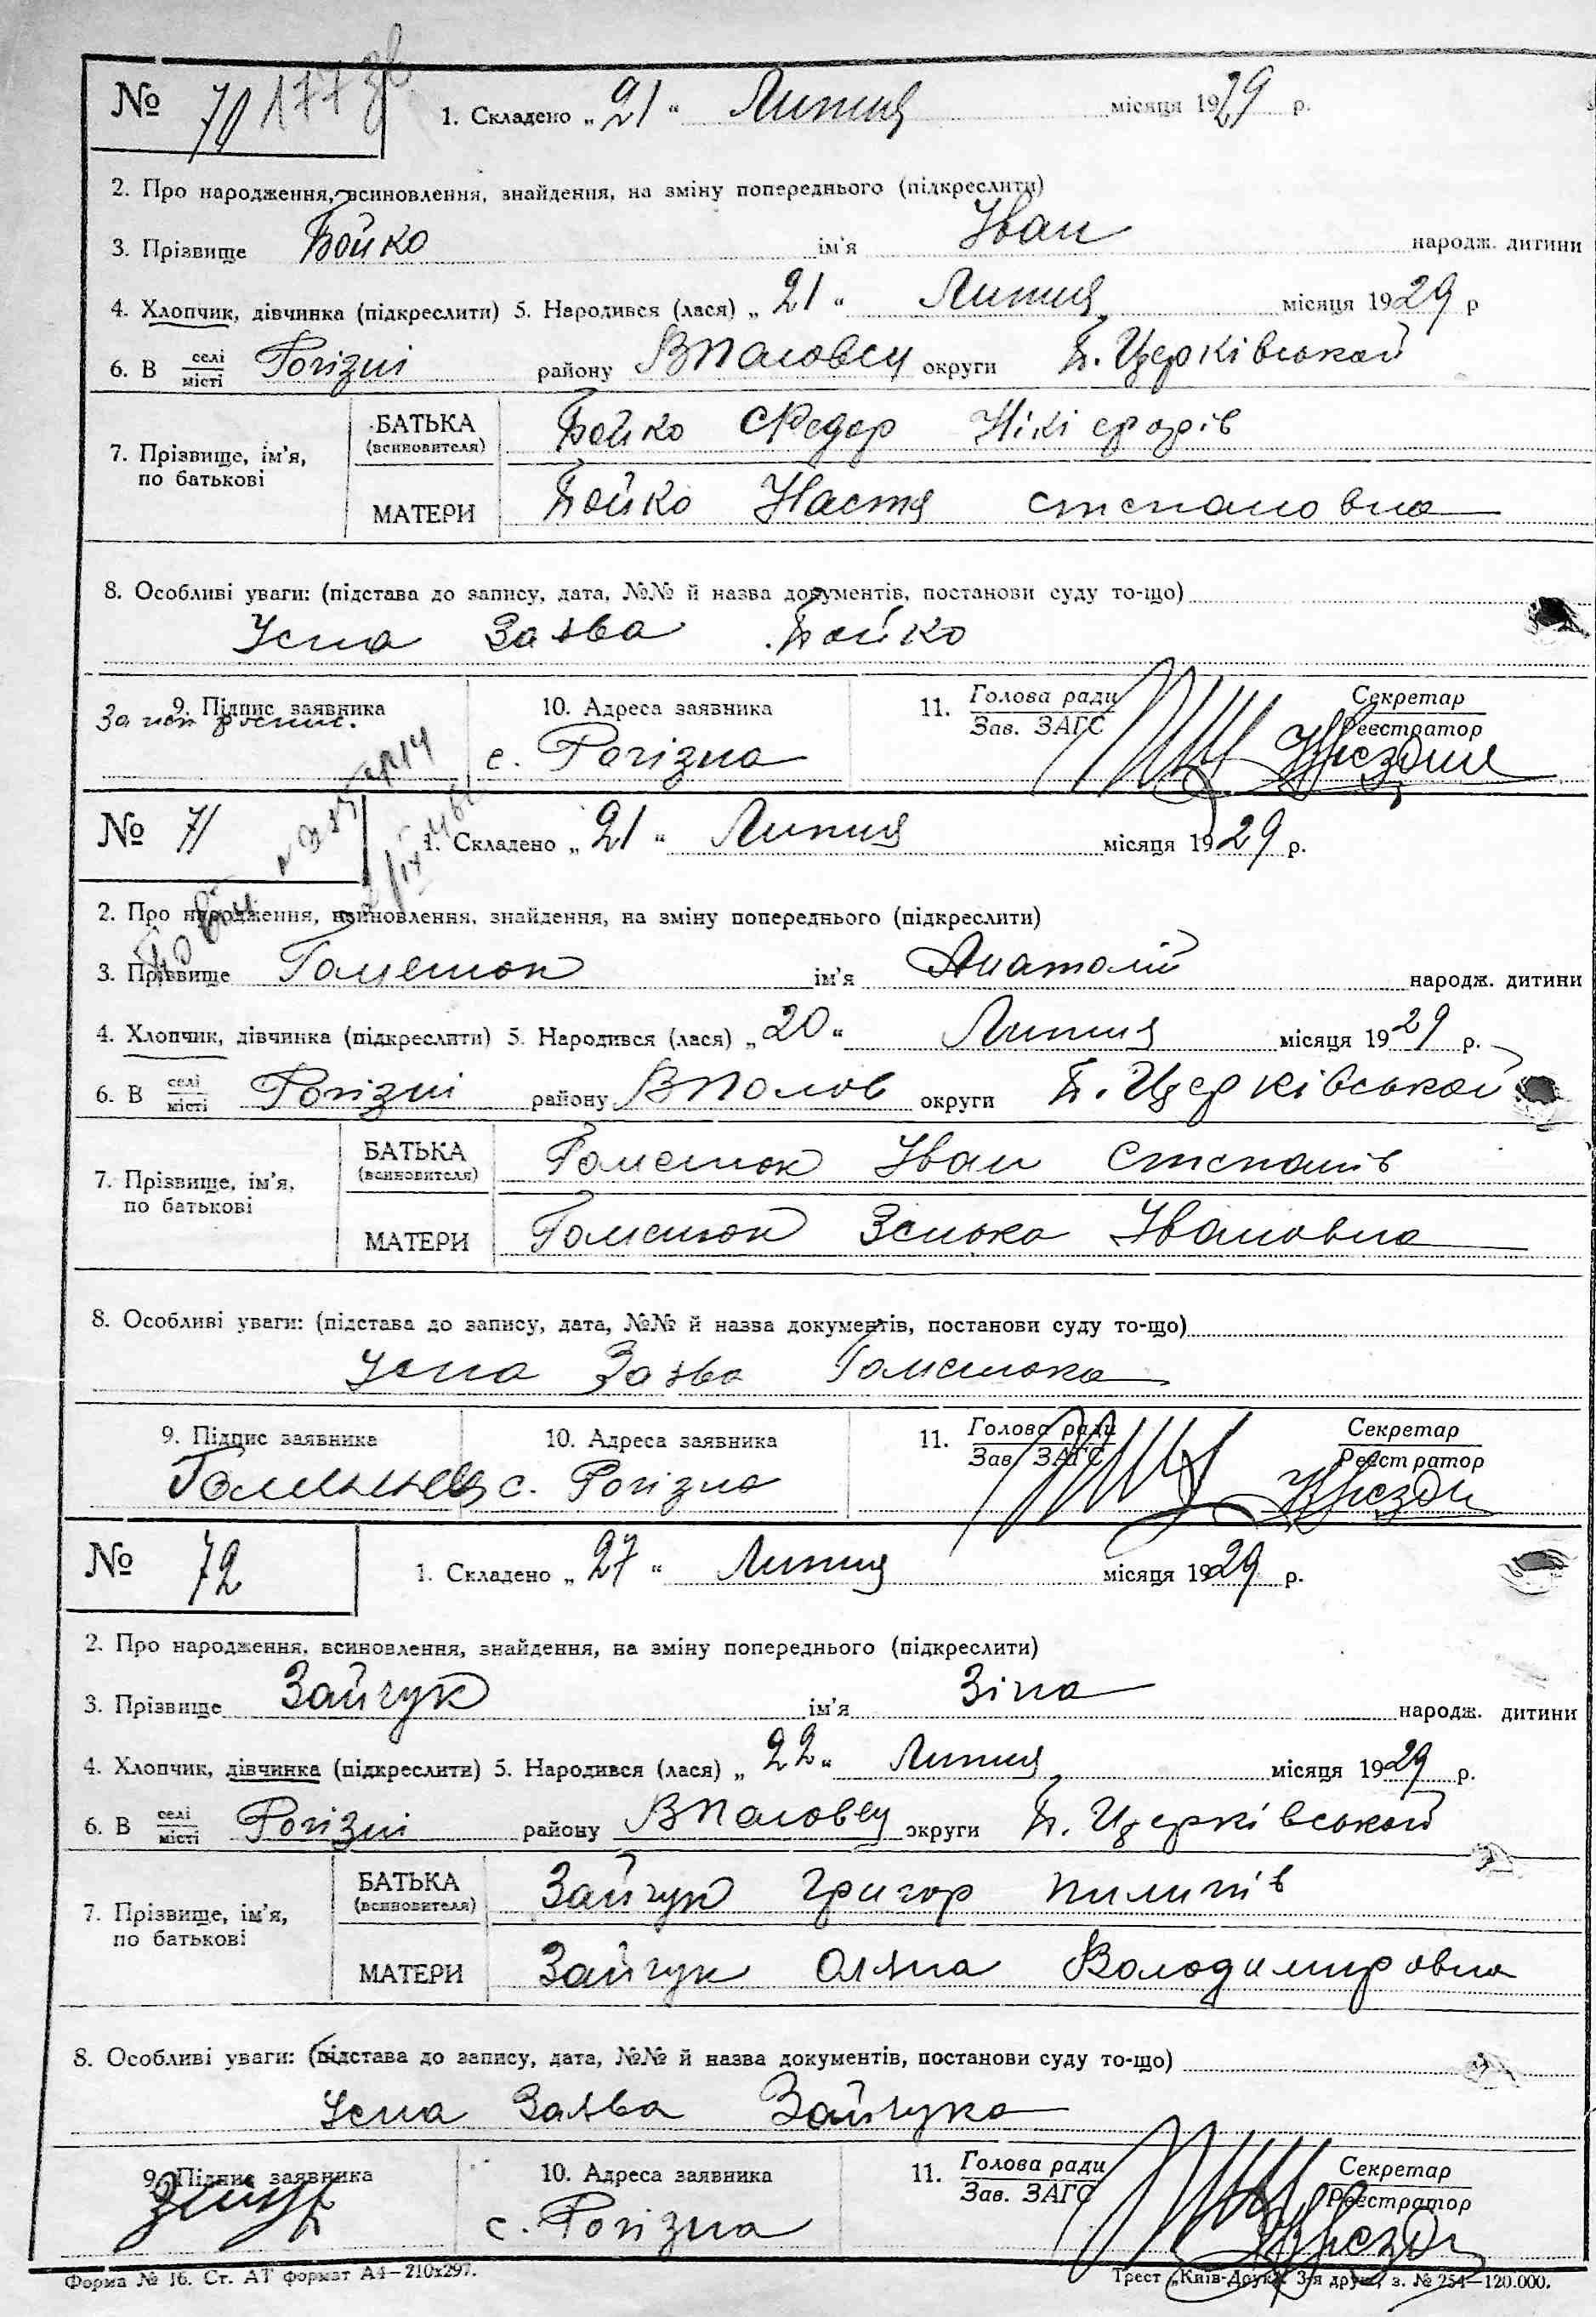 № 70 177 зв
1. Складено „21" Липня місяця 1929 р.
2. Про народження, всиновлення, знайдення, на зміну попереднього (підкреслити)
3. Прізвище Бойко ім'я Іван народж. дитини
4. Хлопчик, дівчинка (підкреслити) 5. Народився (лася) „21" Липня місяця 1929 р
6. В селі/місті Рогізні району ВПоловец округи Б. Церківської
7. Прізвище, ім'я, по батькові
БАТЬКА (всиновителя) Бойко Федор Нікіфорів
МАТЕРИ Бойко Настя степановна
8. Особливі уваги: (підстава до запису, дата, №№ й назва документів, постанови суду то-що)
Усна Заява Бойко
9. Підпис заявника 10. Адреса заявника 11. Голова ради Секретар
За неп Зав. ЗАГС Реєстратор
с. Рогізна
№ 71 1. Складено „21" Липня місяця 1929 р.
2. Про народження, всиновлення, знайдення, на зміну попереднього (підкреслити)
3. Прізвище Гоменюк ім'я Анатолій народж. дитини
4. Хлопчик, дівчинка (підкреслити) 5. Народився (лася) „20" Липня місяця 1929 р.
6. В селі/місті Рогізні району ВПолов округи Б. Церківської
7. Прізвище, ім'я, по батькові
БАТЬКА (всиновителя) Гоменюк Іван Степанів
МАТЕРИ Гоменюк Зенька Івановна
8. Особливі уваги: (підстава до запису, дата, №№ й назва документів, постанови суду то-що)
Усна Заява Гоменюка
9. Підпис заявника 10. Адреса заявника 11. Голова ради Секретар
Зав. ЗАГС Реєстратор
с. Рогізна
№ 72 1. Складено „27" Липня місяця 1929 р.
2. Про народження, всиновлення, знайдення, на зміну попереднього (підкреслити)
3. Прізвище Зайчук ім'я Зіна народж. дитини
4. Хлопчик, дівчинка (підкреслити) 5. Народився (лася) „22" Липня місяця 1929 р.
6. В селі/місті Рогізні району ВПоловец округи Б. Церківської
7. Прізвище, ім'я, по батькові
БАТЬКА (всиновителя) Зайчук Григор Пилипів
МАТЕРИ Зайчук Оляна Володимировна
8. Особливі уваги: (підстава до запису, дата, №№ й назва документів, постанови суду то-що)
Усна Заява Зайчука
9. Підпис заявника 10. Адреса заявника 11. Голова ради Секретар
Зав. ЗАГС Реєстратор
с. Рогізна
Форма № 16. Ст. АТ формат А4—210х297. Трест „Київ-Друк" 3-я друк., з. № 254—120.000.